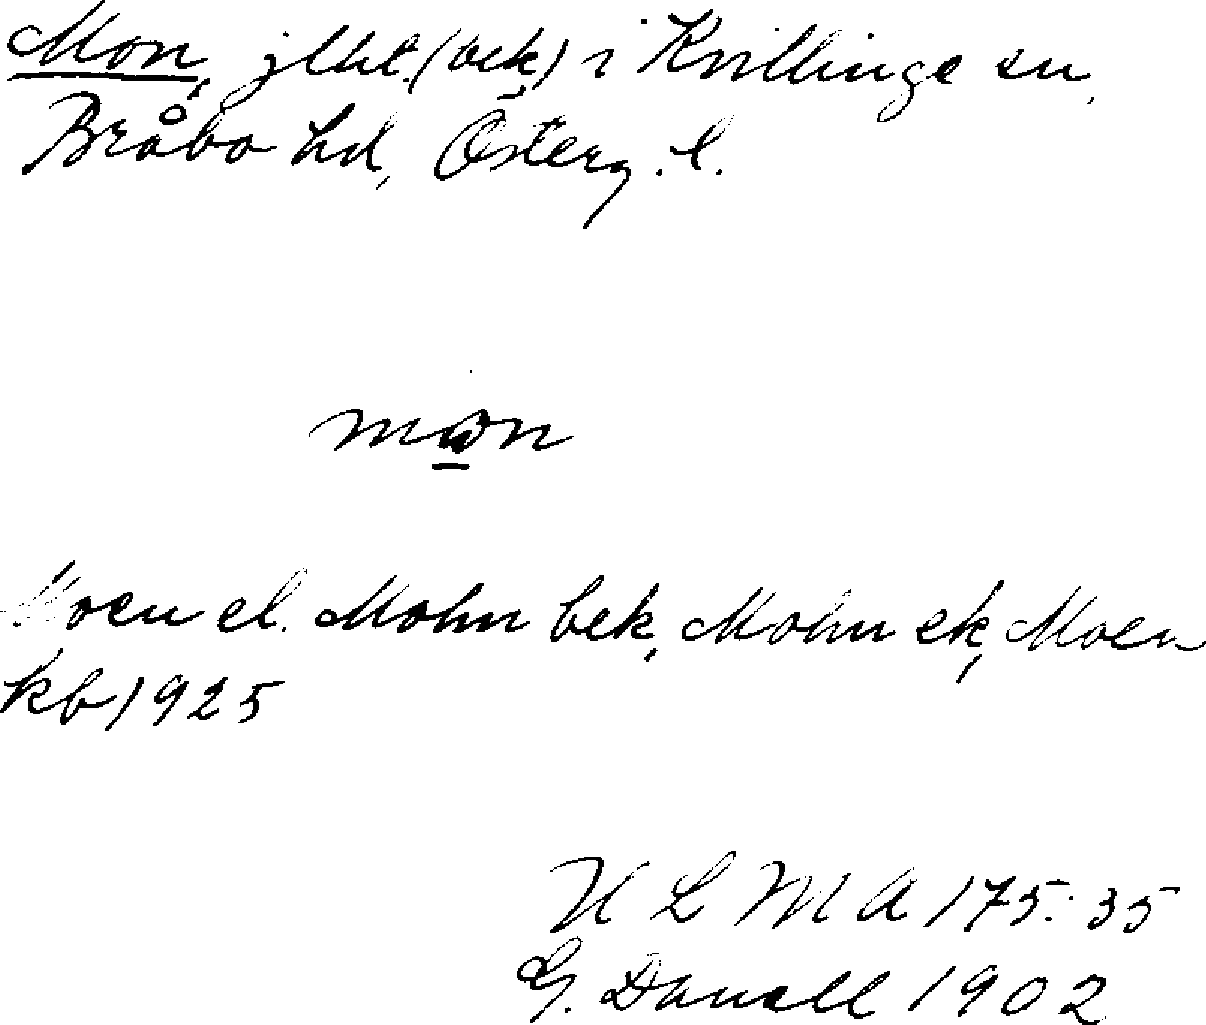 Mon, jlht. (bek) i Kvillinge sn,
Bråbo hd, Österg. l.
mωn
Moen el. Mohn bek, Mohn ek, Moen
kb 1925
ULMA 175:35
G. Danell 1902